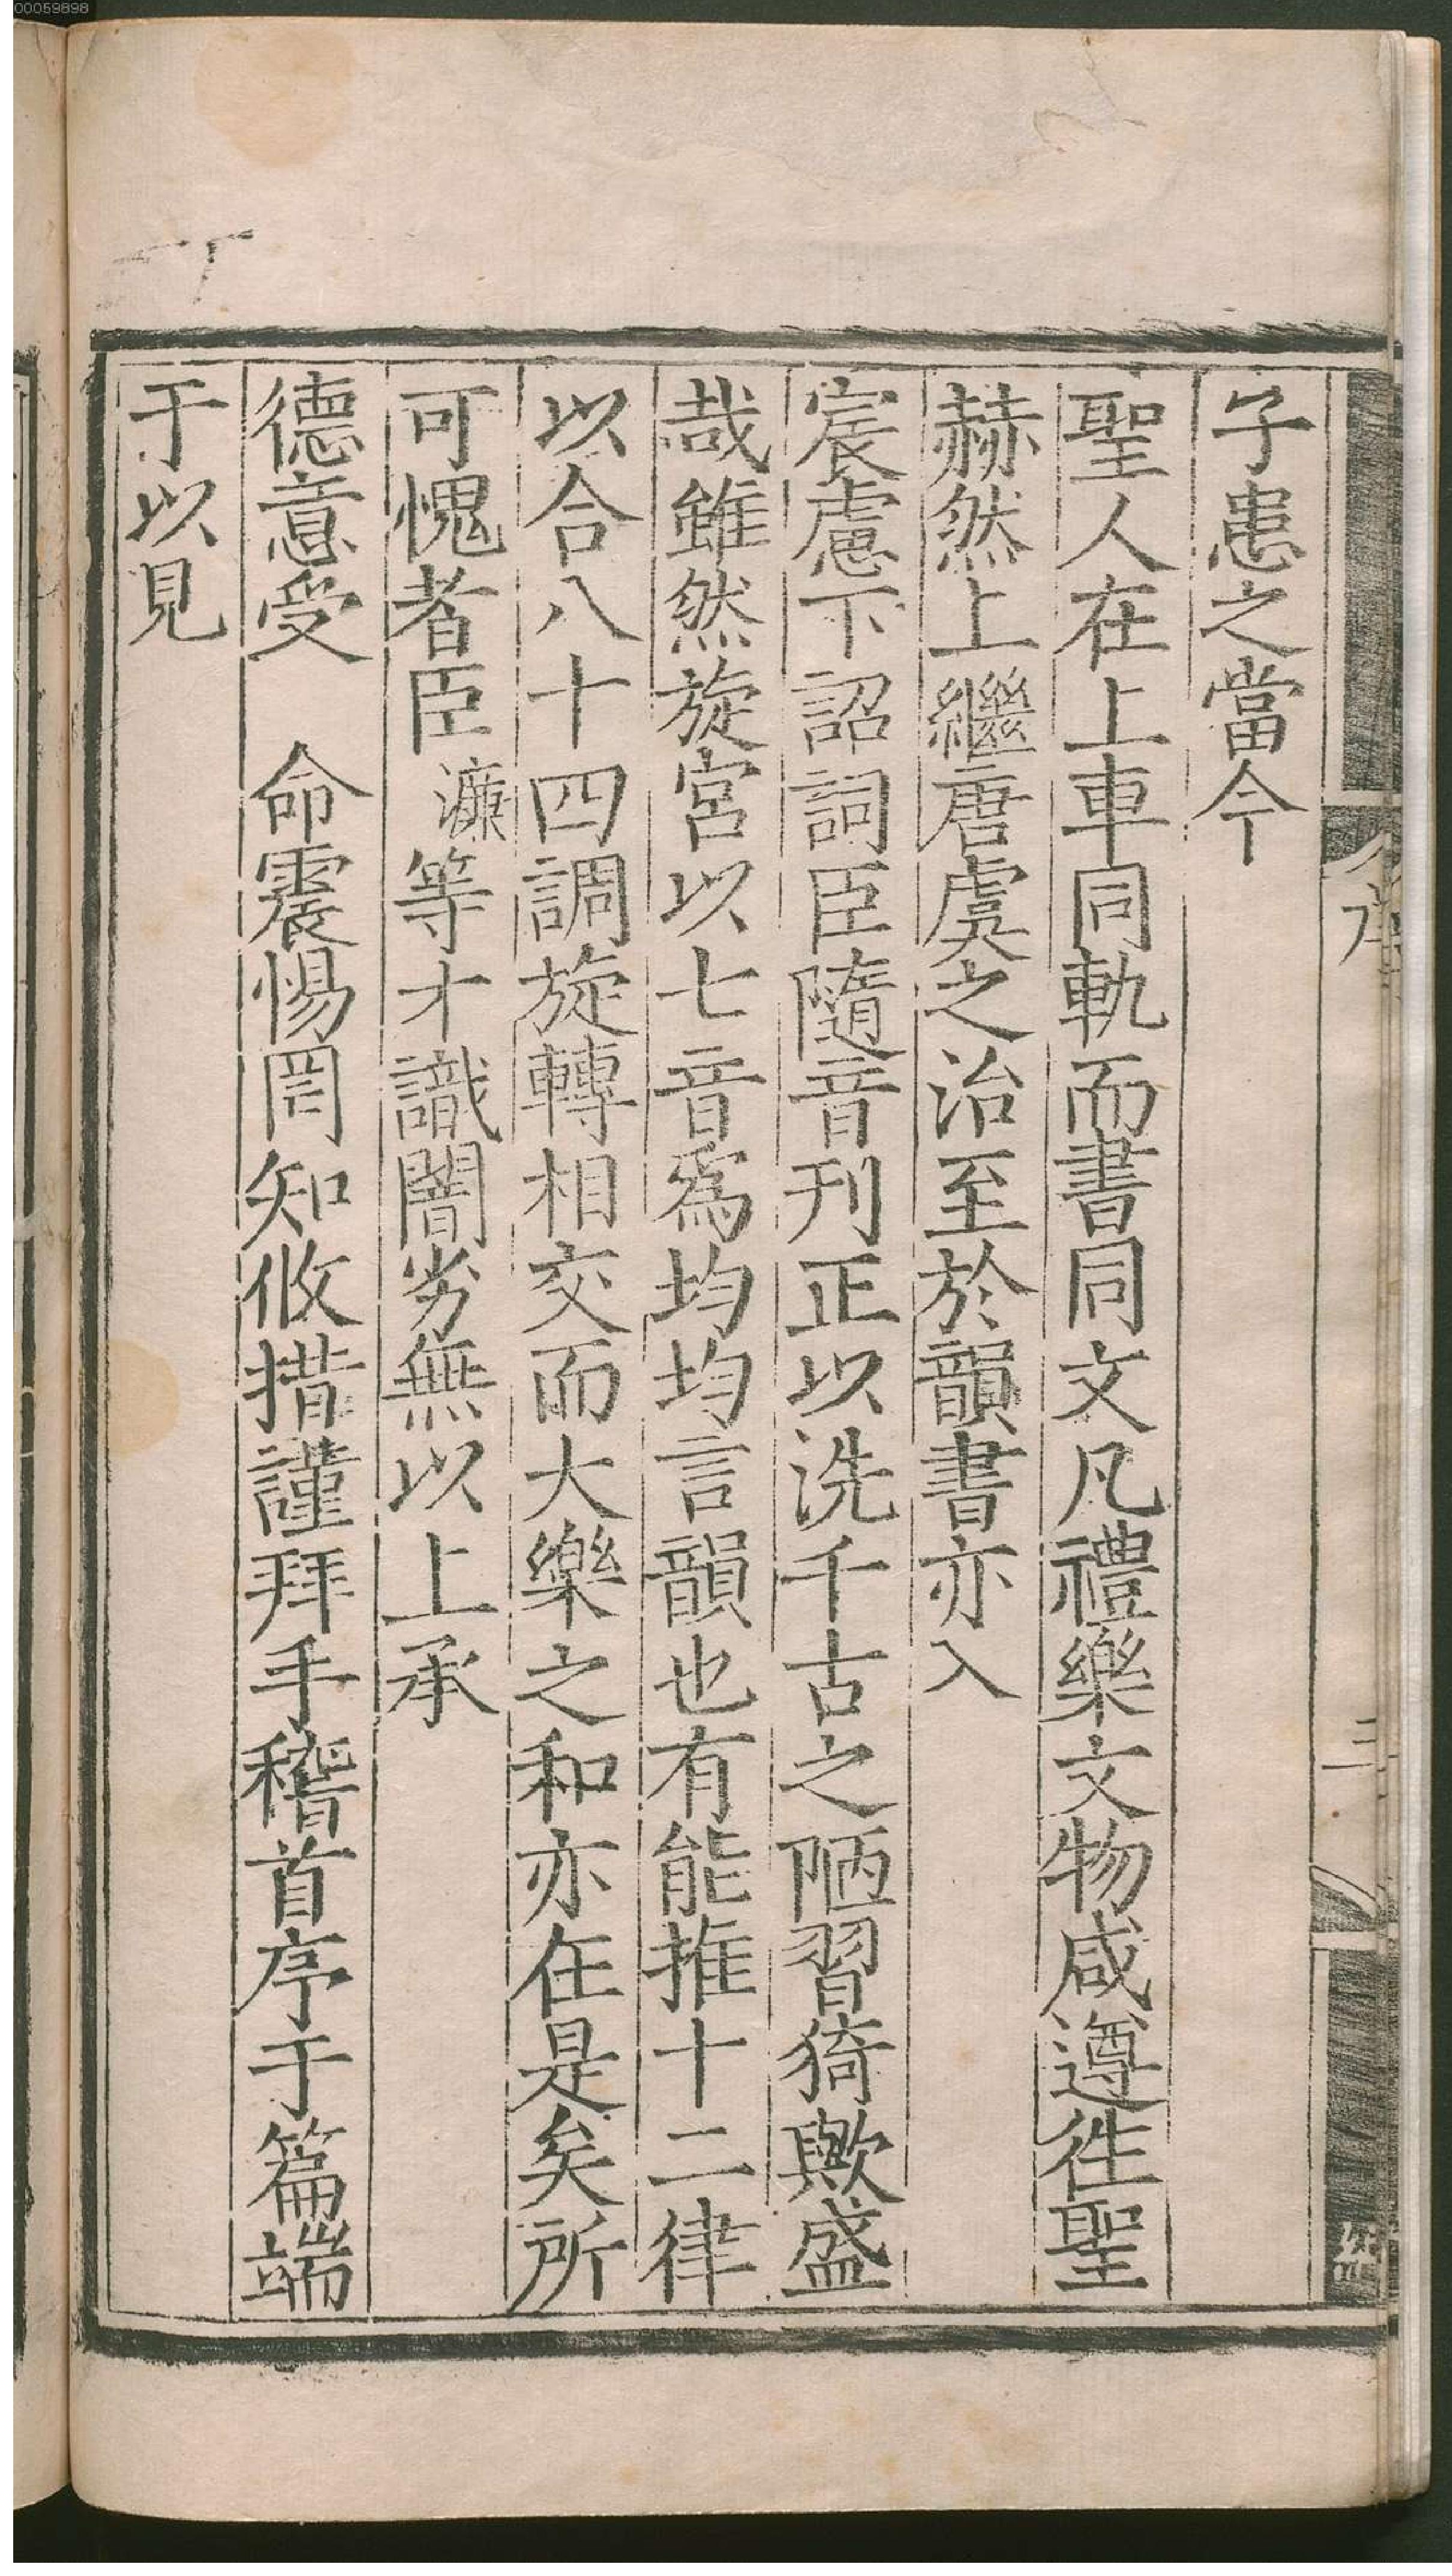 00059898
子患之當今
聖人在上車同軌而書同文凡禮樂文物咸遵徃聖
赫然上繼唐虞之治至於韻書亦入
宸慮下詔詞臣隨音刊正以洗千古之陋習猗歟盛
哉雖然旋宮以七音爲均均言韻也有能推十二律
以合八十四調旋轉相交而大樂之和亦在是矣所
可愧者臣濂等才識闇劣無以上承
德意受　命震惕罔知攸措謹拜手稽首序于篇端
于以見